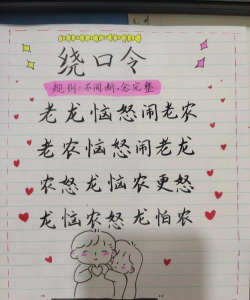 绕口令
规则:不间断,念完整
老龙恼怒闹老农
老农恼怒闹老龙
农怒龙恼农更怒
龙恼农怒龙怕农